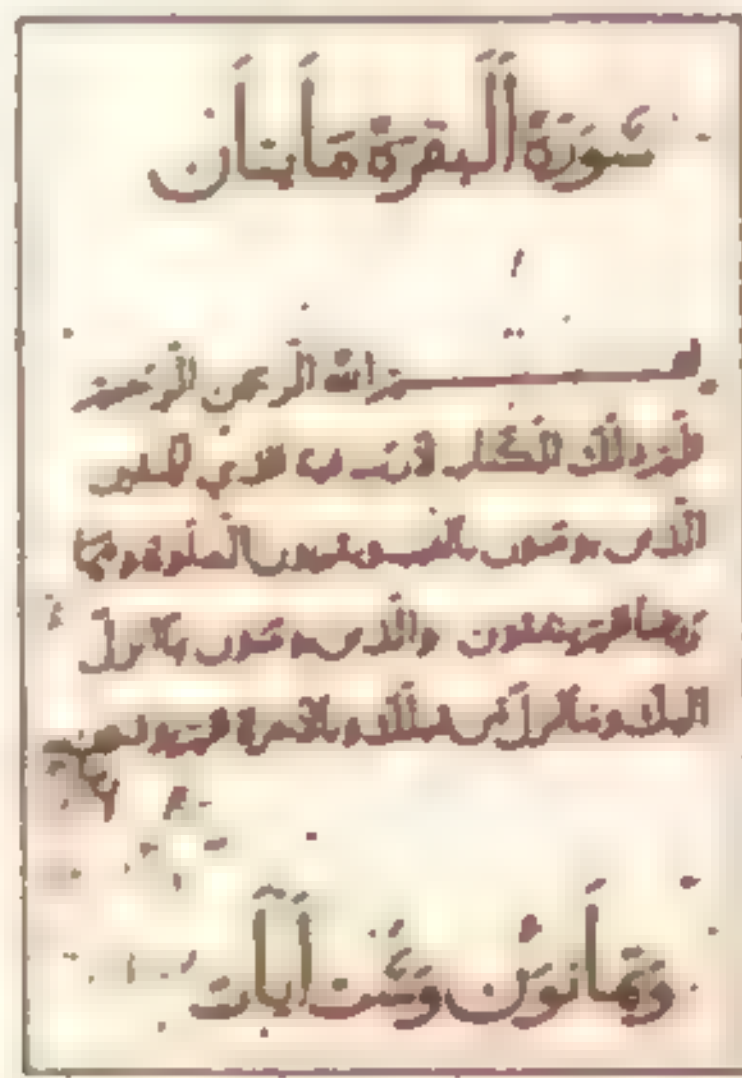 سورة البقرة مائتان
بسم الله الرحمن الرحيم
الم ذلك الكتاب لا ريب فيه هدى للمتقين
الذين يؤمنون بالغيب ويقيمون الصلوة ومما
رزقناهم ينفقون والذين يؤمنون بما انزل
اليك وما انزل من قبلك وبالاخرة هم يوقنون
وثمانون وست آيات